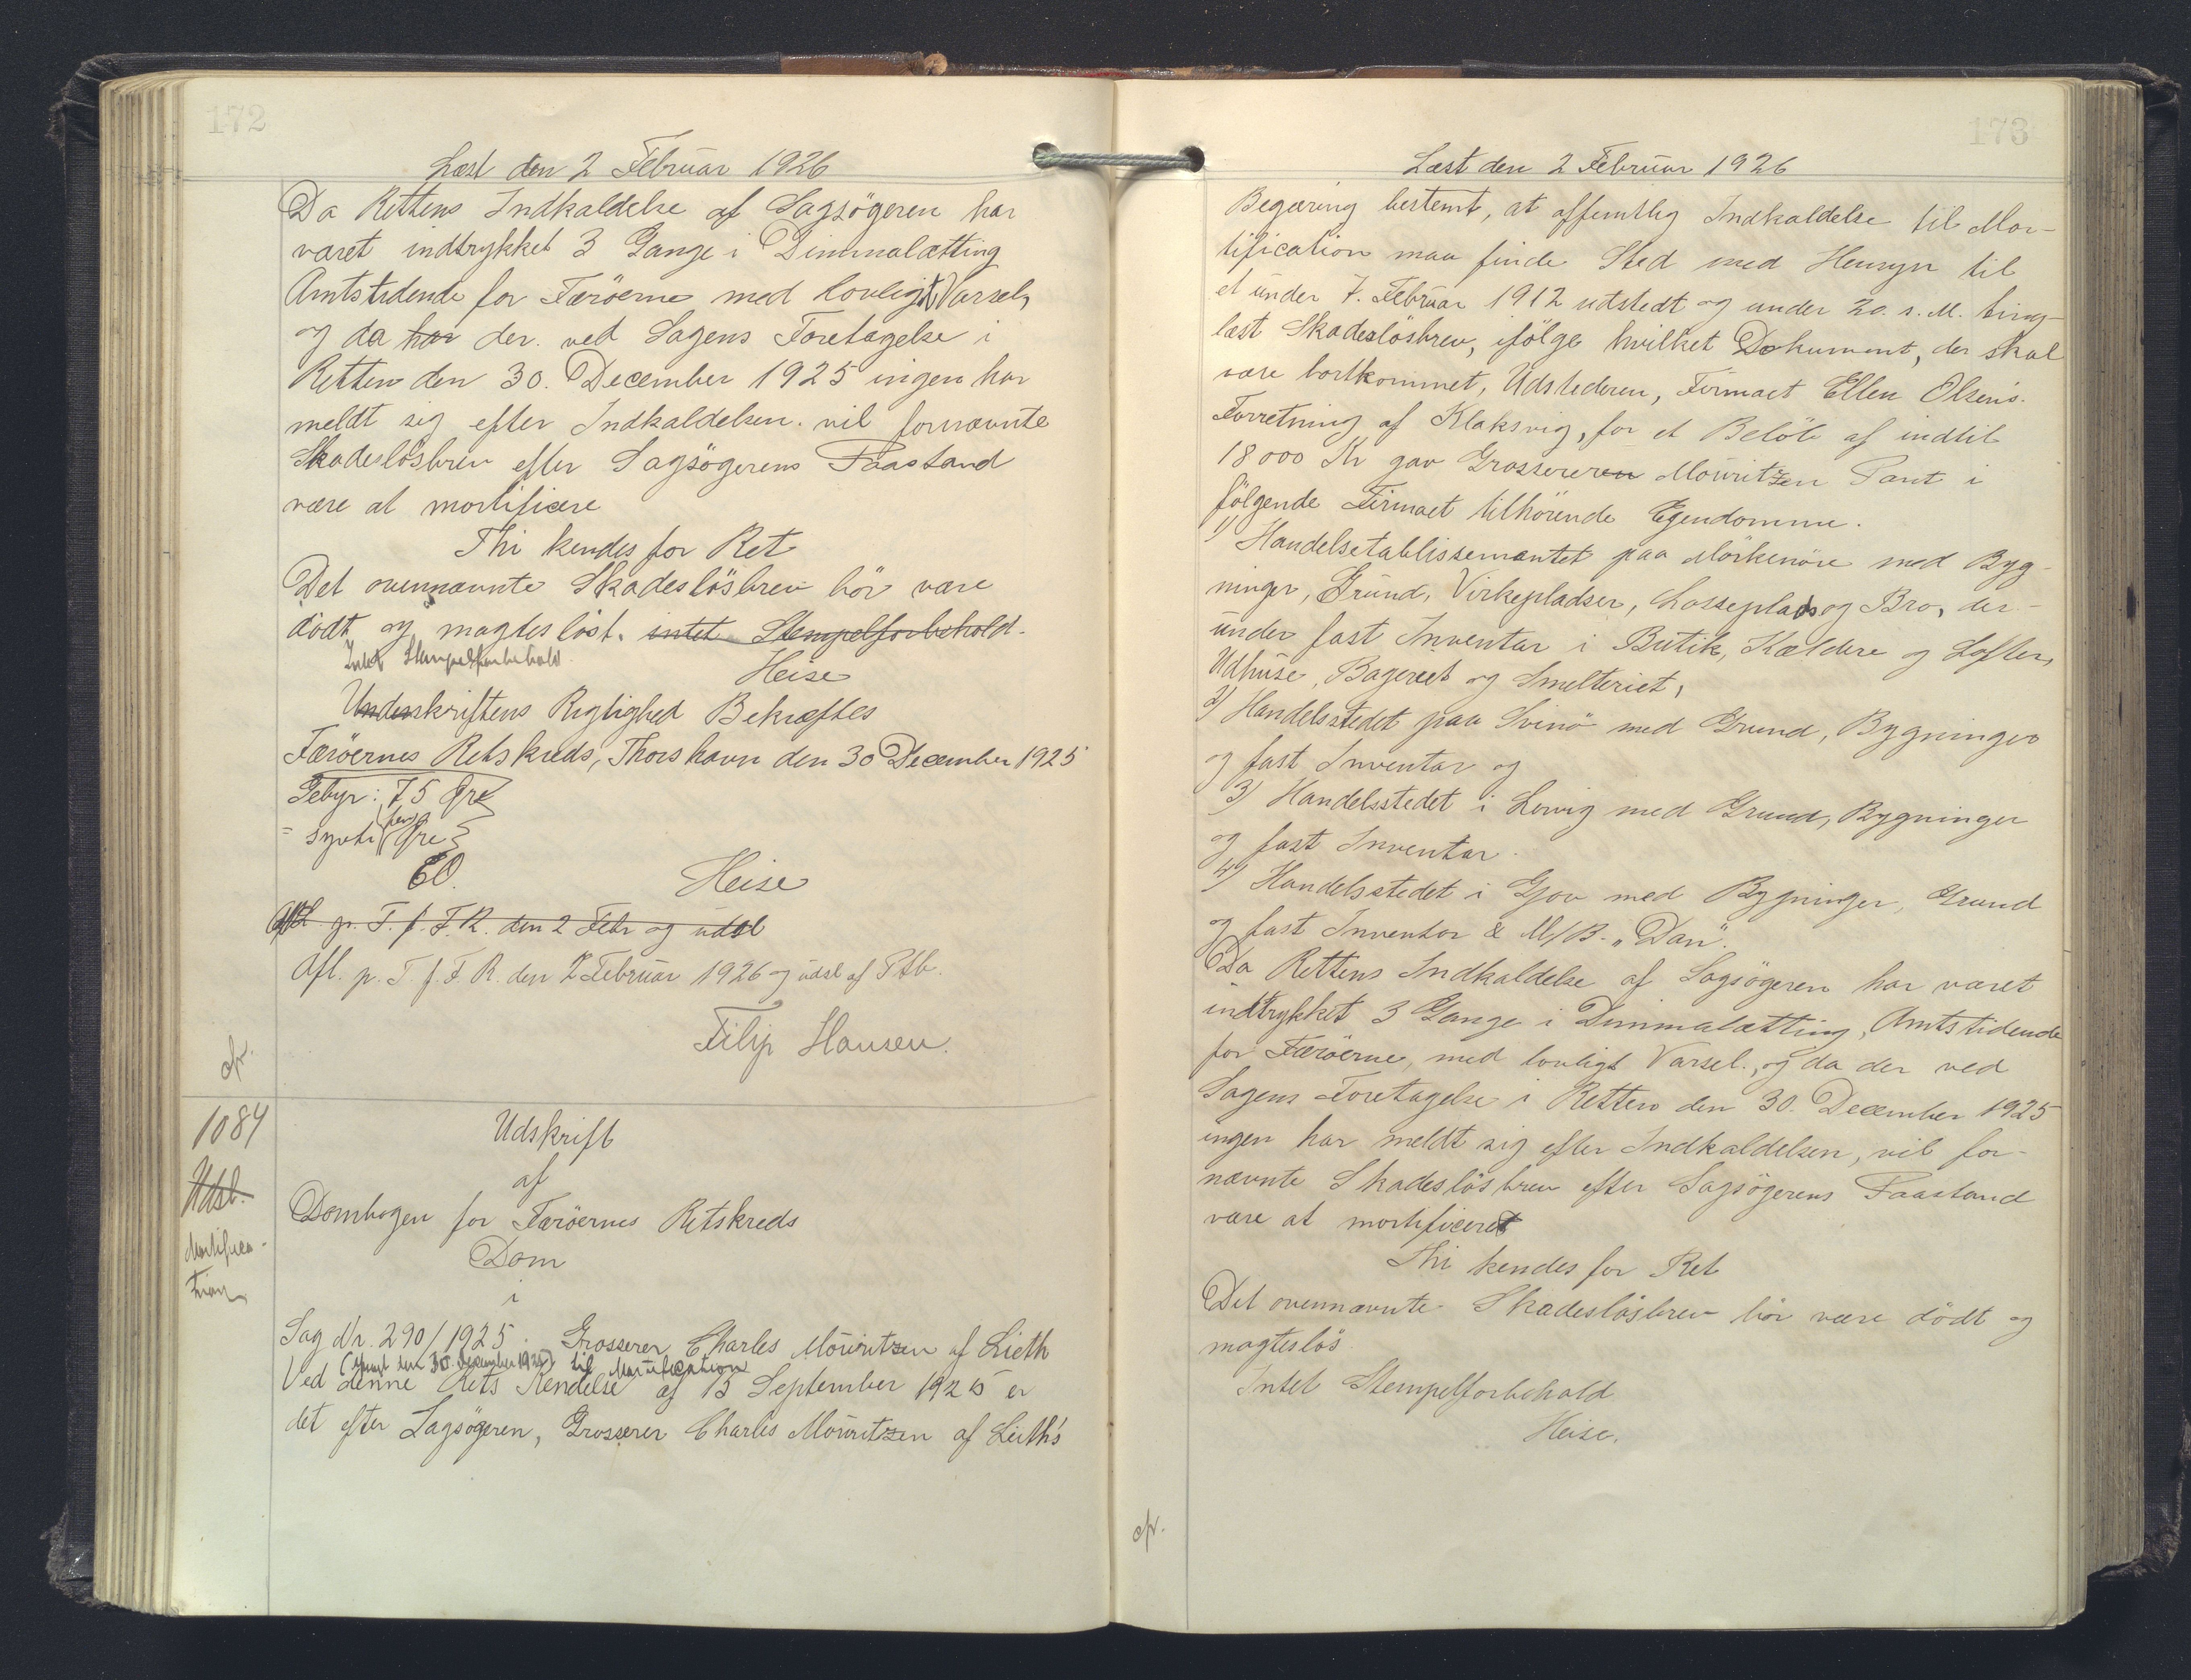 172
Læst den 2 Februar 1926
Da Rettens Indkaldelse af Sagsögeren har
været indtrykket 3 Gange i Dimmalætting
Amtstidende for Færöerne med lovligt Varsel,
og da har der ved Sagens Foretagelse i
Retten den 30. December 1925 ingen har
meldt sig efter Indkaldelsen. vil fornævnte
Skadeslösbrev efter Sagsögerens Paastand
være at mortificere
Thi kendes for Ret
Det ovennævnte Skadeslösbrev bör være
dödt og magteslöst. intet Stempelforbehold.
Intet Stempelforbehold.
Heise
Underskriftens Rigtighed Bekræftes
Færöernes Retskreds, Thorshavn den 30 December 1925
Gebyr: 75 Øre
= syvti fem Øre
EO.
Heise
Afl. p. T. f. F. R. den 2 Febr og udsl
Afl. p. T. f. F. R. den 2 Februar 1926 og udsl af Ptb.
Filip Hansen.
cfr.
1084
Udsl.
Mortifica-
tion
Udskrift
af
Dombogen for Færöernes Retskreds
Dom
i
Sag Nr. 290/1925. Grosserer Charles Mouritzen af Lieth
(afsagt den 30. December 1925) til Mortification
Ved denne Rets Kendelse af 15 September 1925 er
det efter Sagsögeren, Grosserer Charles Mouritzen af Leith's
173
Læst den 2 Februar 1926
Begæring bestemt, at offentlig Indkaldelse til Mor-
tification maa finde Sted med Hensyn til
et under 7. Februar 1912 udstedt og under 20. s. M. ting-
læst Skadeslösbrev, ifölge hvilket Dokument, der skal
være bortkommet, Udstederen, Firmaet Ellen Olsen's
Forretning af Klaksvig, for et Belöb af indtil
18000 Kr gav Grossereren Mouritzen Pant i
fölgende Firmaet tilhörende Egendomme.
1) Handelsetablissementet paa Mörkenöre med Byg-
ninger, Grund, Virkepladser, Losseplads og Bro, der-
under fast Inventar i Butik, Kældere og Lofter,
Udhuse, Bageriet og Smelteriet,
2) Handelsstedet paa Svinö med Grund, Bygninger
og fast Inventar og
3) Handelsstedet i Lervig med Grund, Bygninger
og fast Inventar.
4) Handelsstedet i Gjov med Bygninger, Grund
og fast Inventar & M/B. "Dan".
Da Rettens Indkaldelse af Sagsögeren har været
indtrykket 3 Gange i Dimmalætting, Amtstidende
for Færöerne, med lovligt Varsel., og da der ved
Sagens Foretagelse i Retten den 30. December 1925
ingen har meldt sig efter Indkaldelsen, vil for-
nævnte Skadeslösbrev efter Sagsögerens Paastand
være at mortificeret
Thi kendes for Ret
Det ovennævnte Skadeslösbrev bör være dödt og
magteslös
Intet Stempelforbehold
Heise.
cfr.